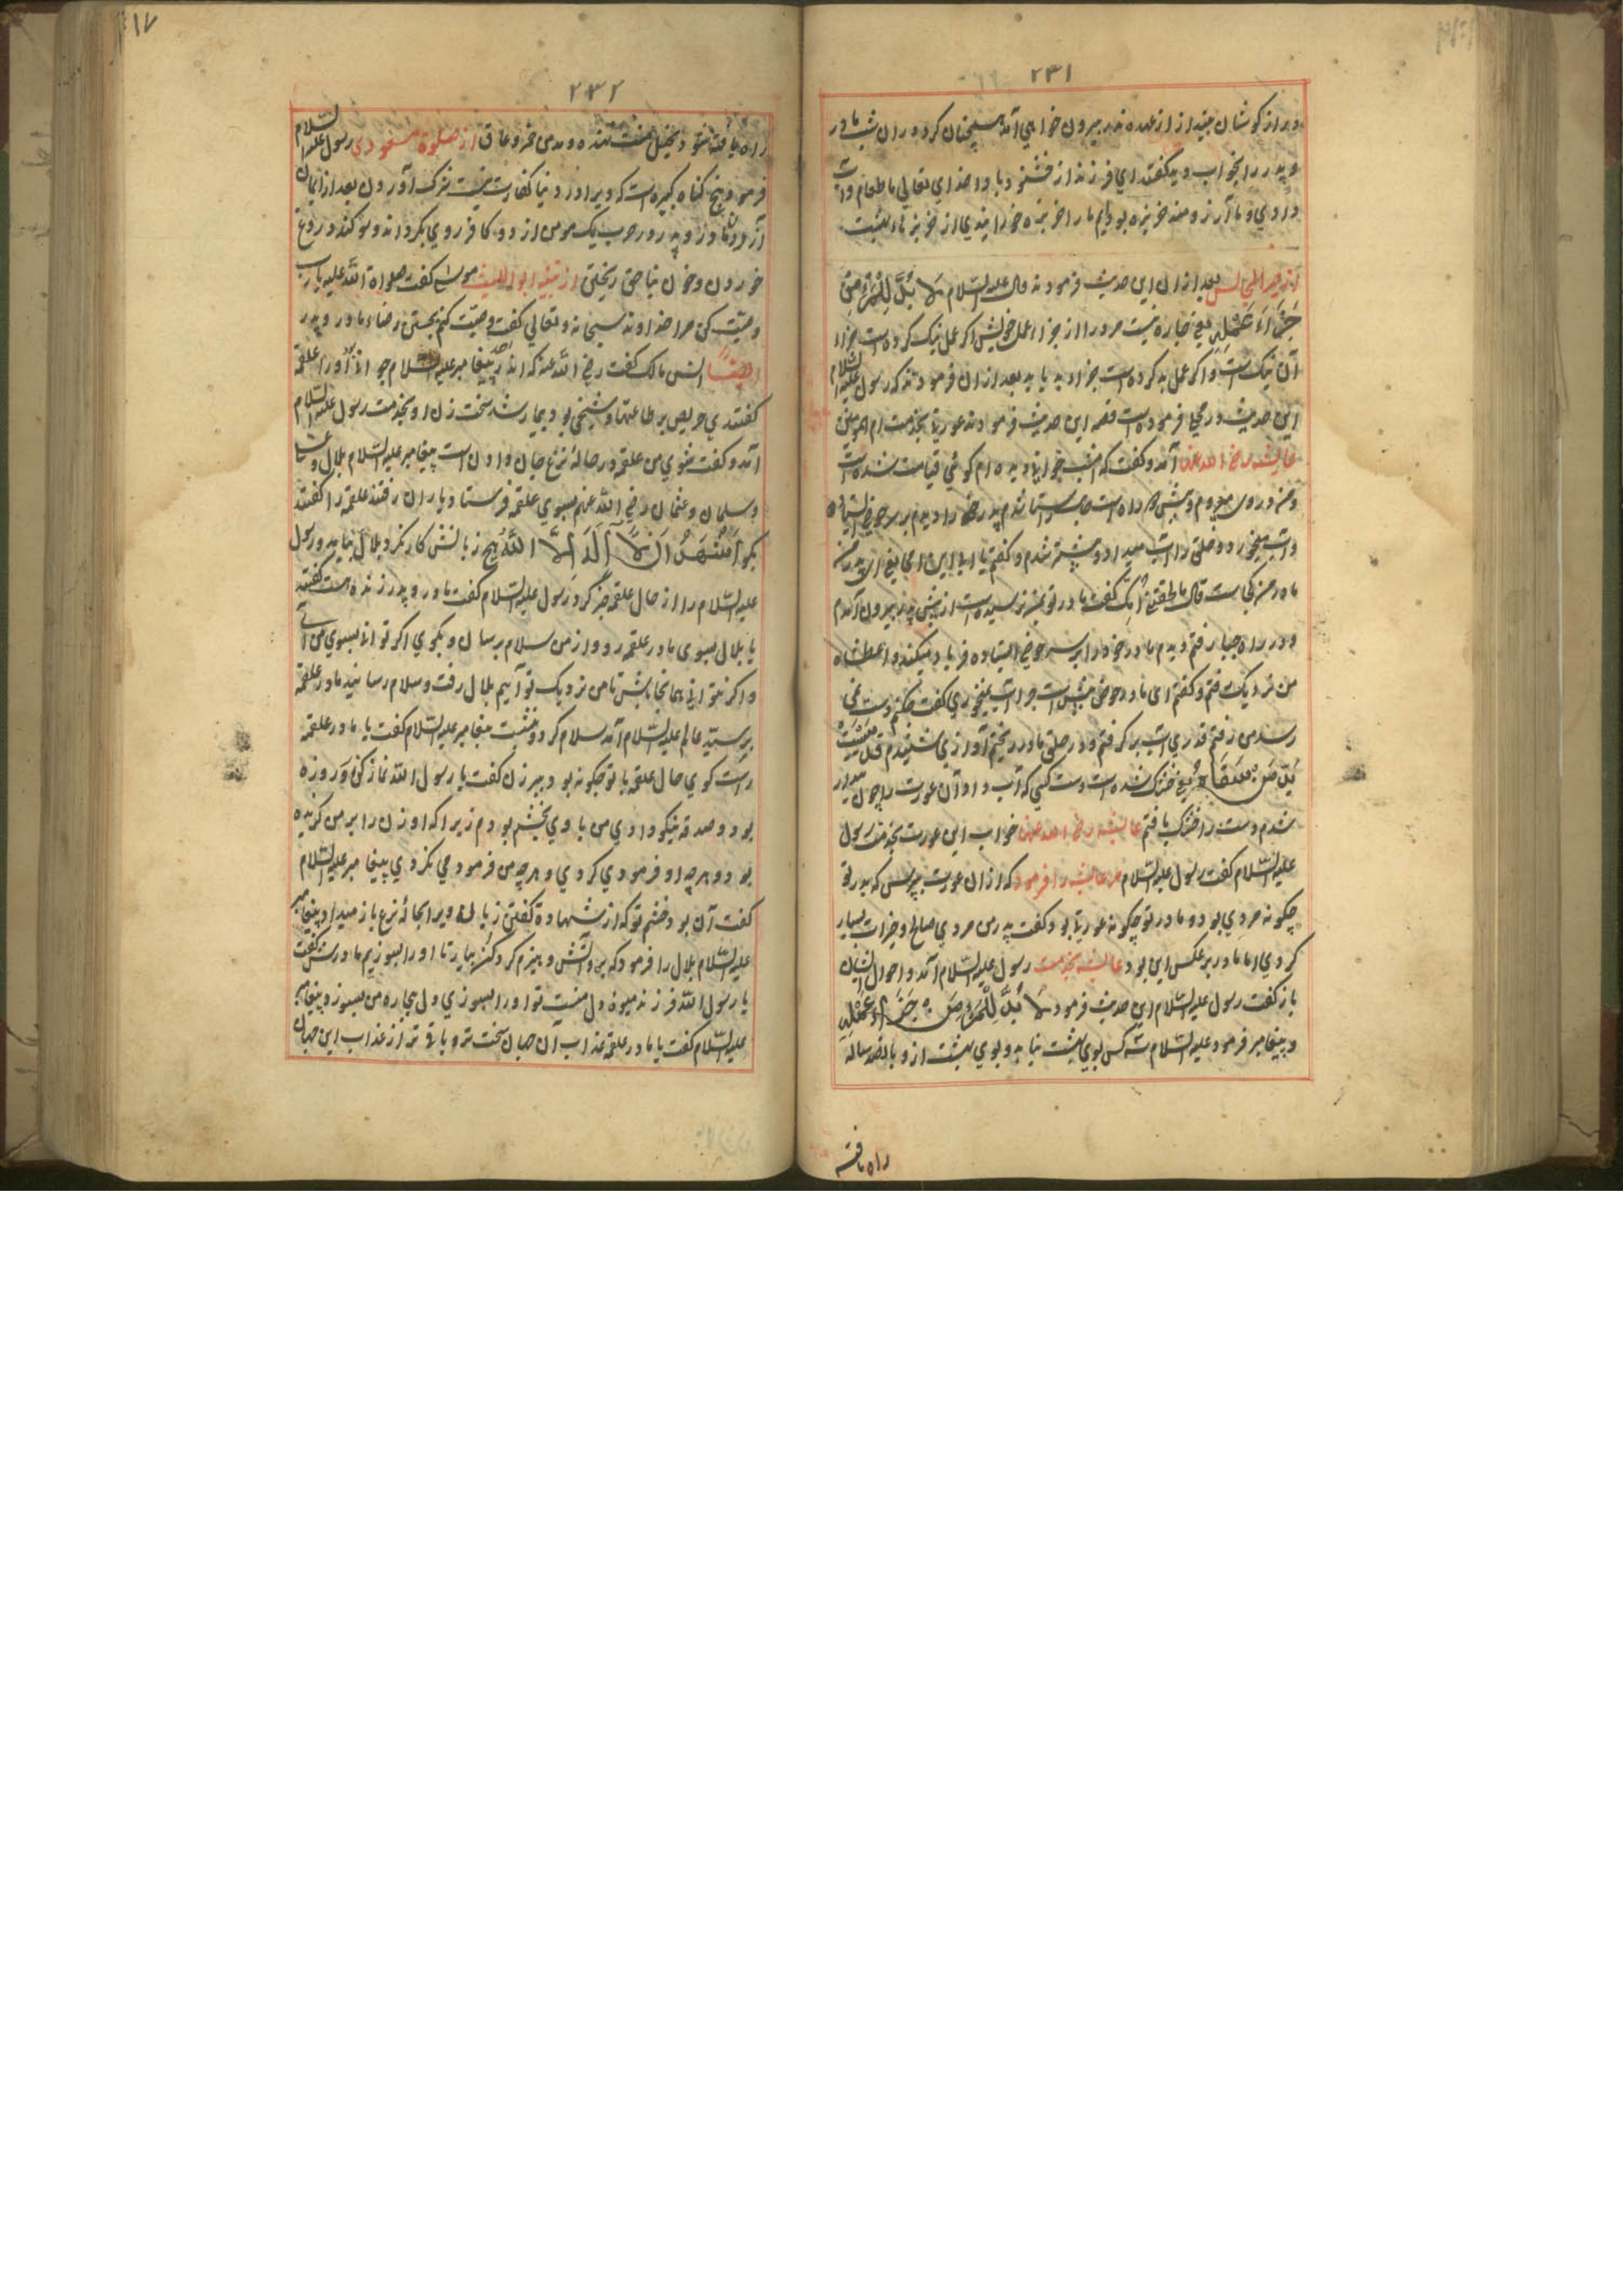 ۲۳۱
ویرا از گوشتان از عهده پدر بیرون خواهی آمد همچنان کرد و در آن شب مادر
و پدر را بخواب دید گفتند ای فرزند از خشنود باد خدای تعالی ما طعام و آب
دادی و ما آرزومند خربزه بودیم ما را خربزه خورانیدی از خربزه بهشت
بعد از ان این حدیث فرمودند قال علیه السلام لا بد للمرء من
جزاء عمله یعنی چاره نیست مرد را از جزاء عمل خویش اگر عمل نیک کرده است جزاء
آن نیک است و اگر عمل بد کرده است جزاء بد یابد بعد از ان فرمودند که رسول علیه السلام
این حدیث در محل فرموده است قصه این حدیث فرمودند عورتی بخدمت ام المومنین
عایشه رضی الله عنها آمد و گفت که امشب خوابی دیده ام گوئی قیامت شده است
و آب میخورد و خلق را آب میداد و پیشتر شدم و گفتم یا ابی این امی یعنی ای پدر من
مادر من کجاست قال ما لحقتنی امک گفت مادر تو بمن نرسیده است از پیش پدر بیرون آمدم
و در راه چپا رفتم دیدم مادر خود را بر سر حوض ایستاده فریاد میکند واعطشاه
من نزدیک رفتم و گفتم ای مادر حوض پیش است چرا آب نمیخوری گفت حکم دست نمی
رسد من رفتم قدری آب بر گرفتم و در حلق مادر ریختم آوازی شنیدم قد یبست
ید من سقاه یعنی خشک شده است دست کسی که آب داد آن عورت را چون بیدار
شدم دست را خشک یافتم عایشه رضی الله عنها خواب این عورت بخدمت رسول
علیه السلام گفت رسول علیه السلام مر عایشه را فرمود که از ان عورت بپرس که پدر تو
چگونه مردی بود و مادر تو چگونه عورتی بود گفت پدر من مردی صالح و خیرات بسیار
کردی اما مادر بر عکس این بود عایشه بخدمت رسول علیه السلام آمد و احوال ایشان
باز گفت رسول علیه السلام این حدیث فرمود لا بد للمرء من جزاء عمله
و پیغامبر فرمود علیه السلام سه کس بوی بهشت نیابد و بوی بهشت از و پانصد ساله
راه یافته
۲۳۲
راه یافته شود بخیل منت نهنده و مدمن خمر و عاق از صلوة مسعودی رسول علیه السلام
فرمود پنج گناه کبیره است که ویرا در دنیا کفارت نیست شرک آوردن بعد از ایمان
آزردن مادر و پدر و در حرب یک مومن از دو کافر روی بگرداند و سوگند دروغ
خوردن و خون بناحق ریختن از تنبیه ابو اللیث موسی گفت صلواة الله علیه یا رب
وصیت کن مرا خداوند سبحانه و تعالی گفت وصیت کنم بجستن رضاء مادر و پدر
ایضا انس مالک گفت رضی الله عنه که اندر عهد پیغامبر علیه السلام جوانی بود او را علقمه
گفتندی حریص بر طاعتها و شیخی بود بیمار شد سخت زن او بخدمت رسول علیه السلام
آمد و گفت شوی من علقمه در حالة نزع جان دادن است پیغامبر علیه السلام بلال و
و سلمان و عثمان رضی الله عنهم بسوی علقمه فرستاد یاران رفتند علقمه را گفتند
بگو اشهد ان لا اله الا الله هیچ زبانش کار نکرد بلال بیامد و رسول
علیه السلام را از حال علقمه خبر کرد رسول علیه السلام گفت مادر و پدر زنده هست گفتند
یا بلال بسوی مادر علقمه رو و از من سلام برسان و بگوی اگر توانی بسوی من آی
و اگر نتوانی همانجا باش تا من نزدیک تو آیم بلال رفت و سلام رسانید مادر علقمه
بر سید عالم علیه السلام آمد سلام کرد و بنشست پیغامبر علیه السلام گفت یا مادر علقمه
راست گوی حال علقمه با تو چگونه بود پیر زن گفت یا رسول الله نماز کن و روزه
بود و صدقه نیکو دادی من با وی بخشم بودم زیرا که او زن را بر من گزیده
بود و هر چه او فرمودی کردی و هر چه من فرمودمی نکردی پیغامبر علیه السلام
گفت آن بود خشم تو که از شهادة گفتن زبان ویرا بحالة نزع باز میدارد پیغامبر
علیه السلام بلال را فرمود که برو آتش و هیزم گرد کن بیار تا او را بسوزیم مادرش گفت
یا رسول الله فرزند میوه دل منست تو او را بسوزی دل بیچاره من بسوزد پیغامبر
علیه السلام گفت یا مادر علقمه عذاب آن جهان سخت تر و باقی تر از عذاب این جهان